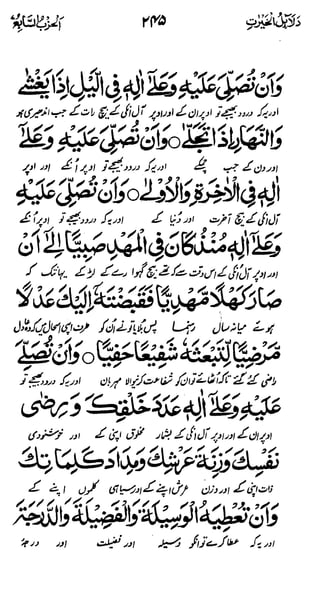 دلائل الخیرات ۲۴۵ الحزب السابع
وَاَنْ تُصَلِّيَ عَلَيْهِ وَعَلٰٓى اٰلِهٖ فِى الَّيْلِ اِذَا يَغْشٰى
اور یہ کہ درود بھیجے تو اوپر ان کے اور اوپر آل انکی کے بیچ رات کے جب اندھیری ہو
وَالنَّهَارِ اِذَا تَجَلّٰى ۝ وَاَنْ تُصَلِّيَ عَلَيْهِ وَعَلٰٓى
اور دن کے جب چمکے اور یہ کہ درود بھیجے تو اوپر انکے اور اوپر
اٰلِهٖ فِى الْاٰخِرَةِ وَالْاُوْلٰى ۝ وَاَنْ تُصَلِّيَ عَلَيْهِ
آل انکی کے بیچ آخرت اور دنیا کے اور یہ کہ درود بھیجے تو اوپر انکے
وَعَلٰٓى اٰلِهٖ مُنْذُ كَانَ فِى الْمَهْدِ صَبِيًّا اِلٰٓى اَنْ
اور اوپر آل انکی کے اس وقت سے کہ تھے بیچ گہوارے کے لڑکے یہانتک کہ
صَارَ كَهْلًا مَّهْدِيًّا فَقَبَضْتَهٗٓ اِلَيْكَ عَدْلًا
ہوئے میانہ سال رہنما پس بلایا تونے ان کو طرف اپنی
مَّرْضِيًّا لِتَبْعَثَهٗ شَفِيْعًا حَفِيًّا ۝ وَاَنْ تُصَلِّيَ
راضی کئے گئے تاکہ اٹھائے تو ان کو شفاعت کرنیوالا مہربان اور یہ کہ درود بھیجے تو
عَلَيْهِ وَعَلٰٓى اٰلِهٖ عَدَدَ خَلْقِكَ وَرِضٰى
اوپر ان کے اور اوپر آل انکی کے بشمار مخلوق اپنی کے اور خوشنودی
نَفْسِكَ وَزِنَةَ عَرْشِكَ وَمِدَادَ كَلِمَاتِكَ
ذات اپنی کے اور وزن عرش اپنے کے اور سیاہی کلموں اپنے کے
وَاَنْ تُعْطِيَهُ الْوَسِيْلَةَ وَالْفَضِيْلَةَ وَالدَّرَجَةَ
اور یہ کہ عطا کرے تو انکو وسیلہ اور فضیلت اور درجۂ